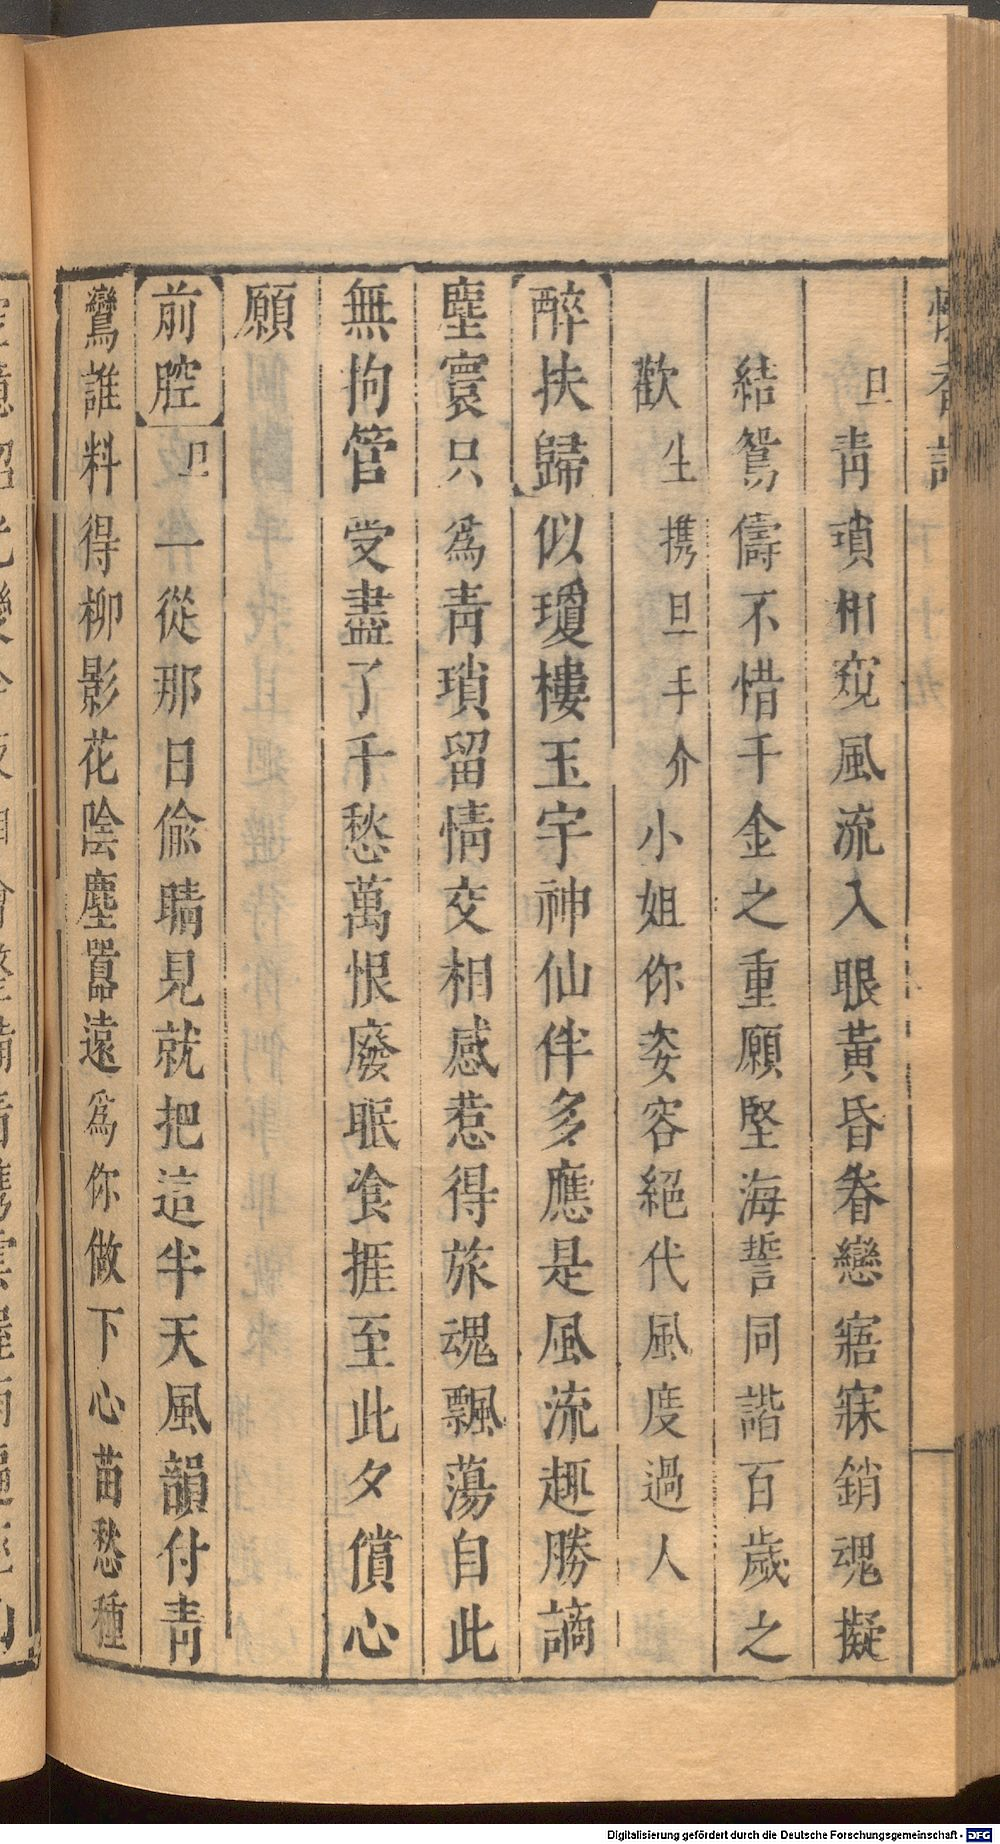 懷香記
旦青瑣相窺風流入眼黃昏眷戀寤寐銷魂擬
結鴛儔不惜千金之重願堅海誓同諧百歲之
歡生携旦手介小姐你姿容絕代風度過人
醉扶歸似瓊樓玉宇神仙伴多應是風流趣勝謫
塵寰只為靑瑣留情交相感惹得旅魂飄蕩自此
無拘管受盡了千愁萬恨廢眠飡捱至此夕償心
願
前腔旦一從那日偸睛見就把這半天風韻付靑
鸞誰料得柳影花陰塵囂遠為你做下心苗愁種
Digitalisierung gefördert durch die Deutsche Forschungsgemeinschaft - DFG